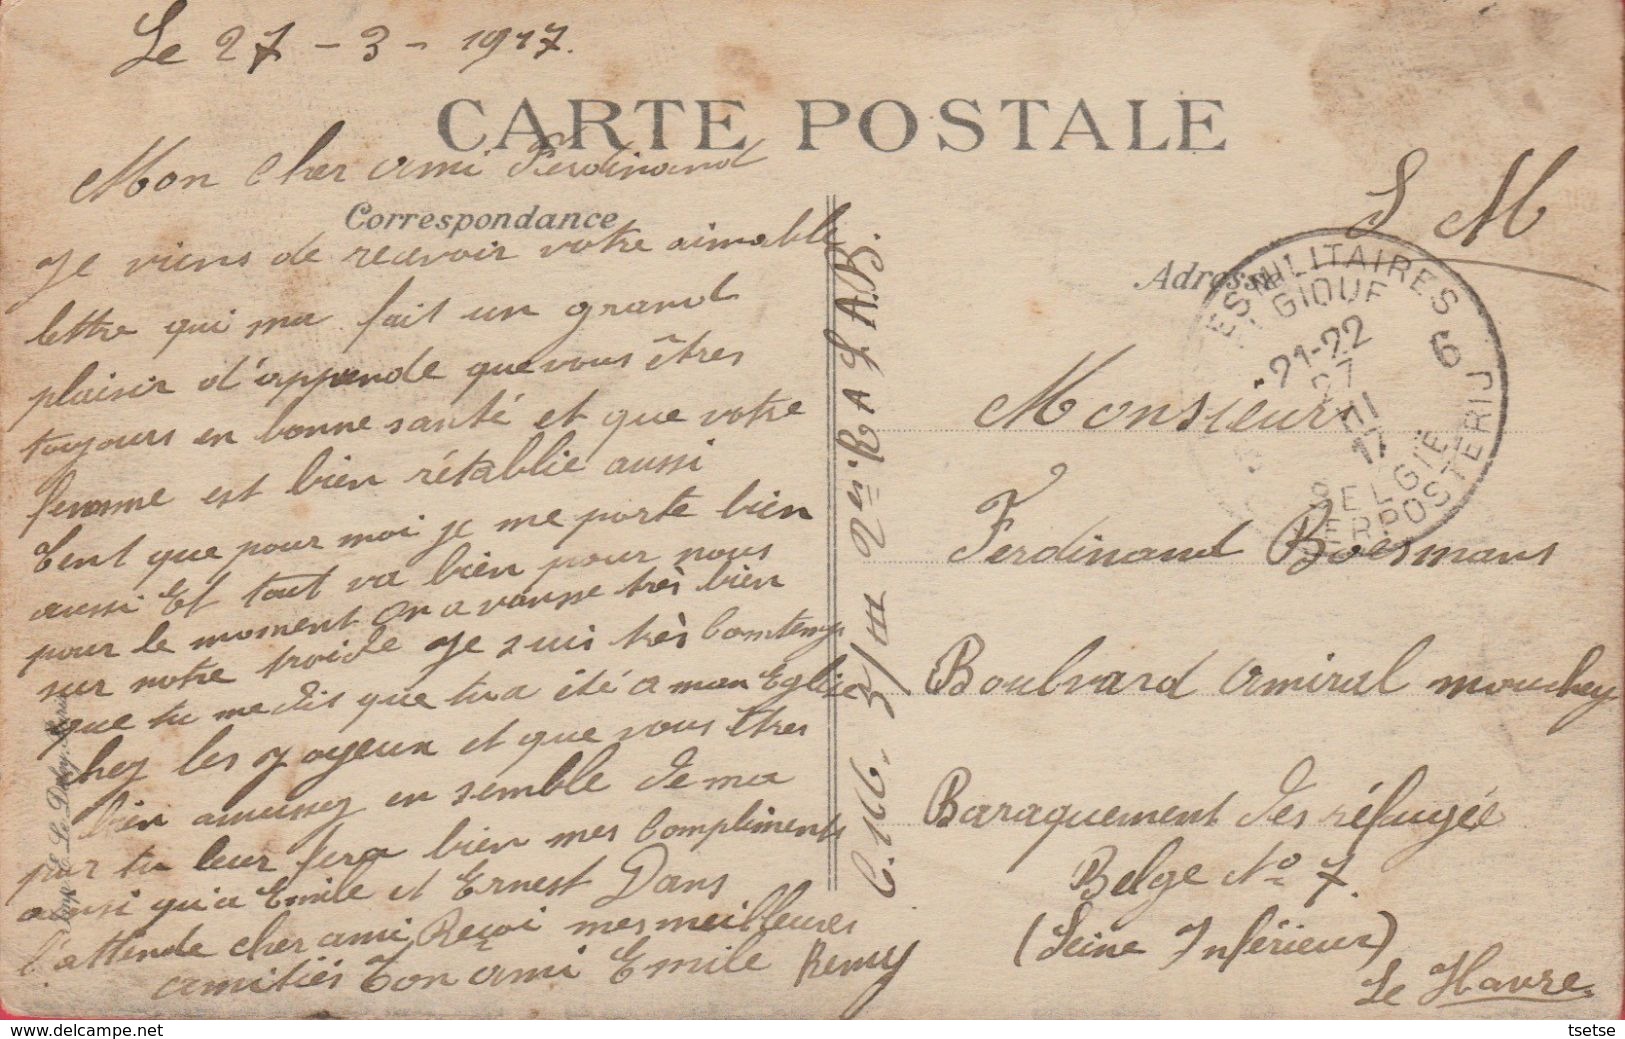 Le 27 - 3 - 1917.
CARTE POSTALE
Mon cher ami Ferdinand
Correspondance
Je viens de recevoir votre aimable
lettre qui ma fait un grand
plaisir d'apprende que vous êtres
toujours en bonne santé et que votre
femme est bien rétablie aussi
tent que pour moi je me porte bien
aussi Et tout va bien pour nous
pour le moment On a vanse très bien
sur notre troide Je suis très Contemps
que tu me dis que tu a été a mon Eglise
chez les Joyeux et que vous êtres
bien amussez en semble de ma
par tu leur fera bien mes Compliments
ainsi qu'a Emile et Ernest Dans
l'attende cher ami, Reçoi mes meilleures
amitiés Ton ami Emile Remy
C. 166. 3/III 2er R A L A.B.
S M
Adresse
ES MILITAIRES
GIQUE
21-22
27
III
17
6
BELGIË
ERPOSTERIJ
Monsieur
Ferdinand Boesmans
Boulvard amiral mouchey
Baraquement des réfugée
Belge No 7.
(Seine Inférieur)
Le Havre.
tsetse